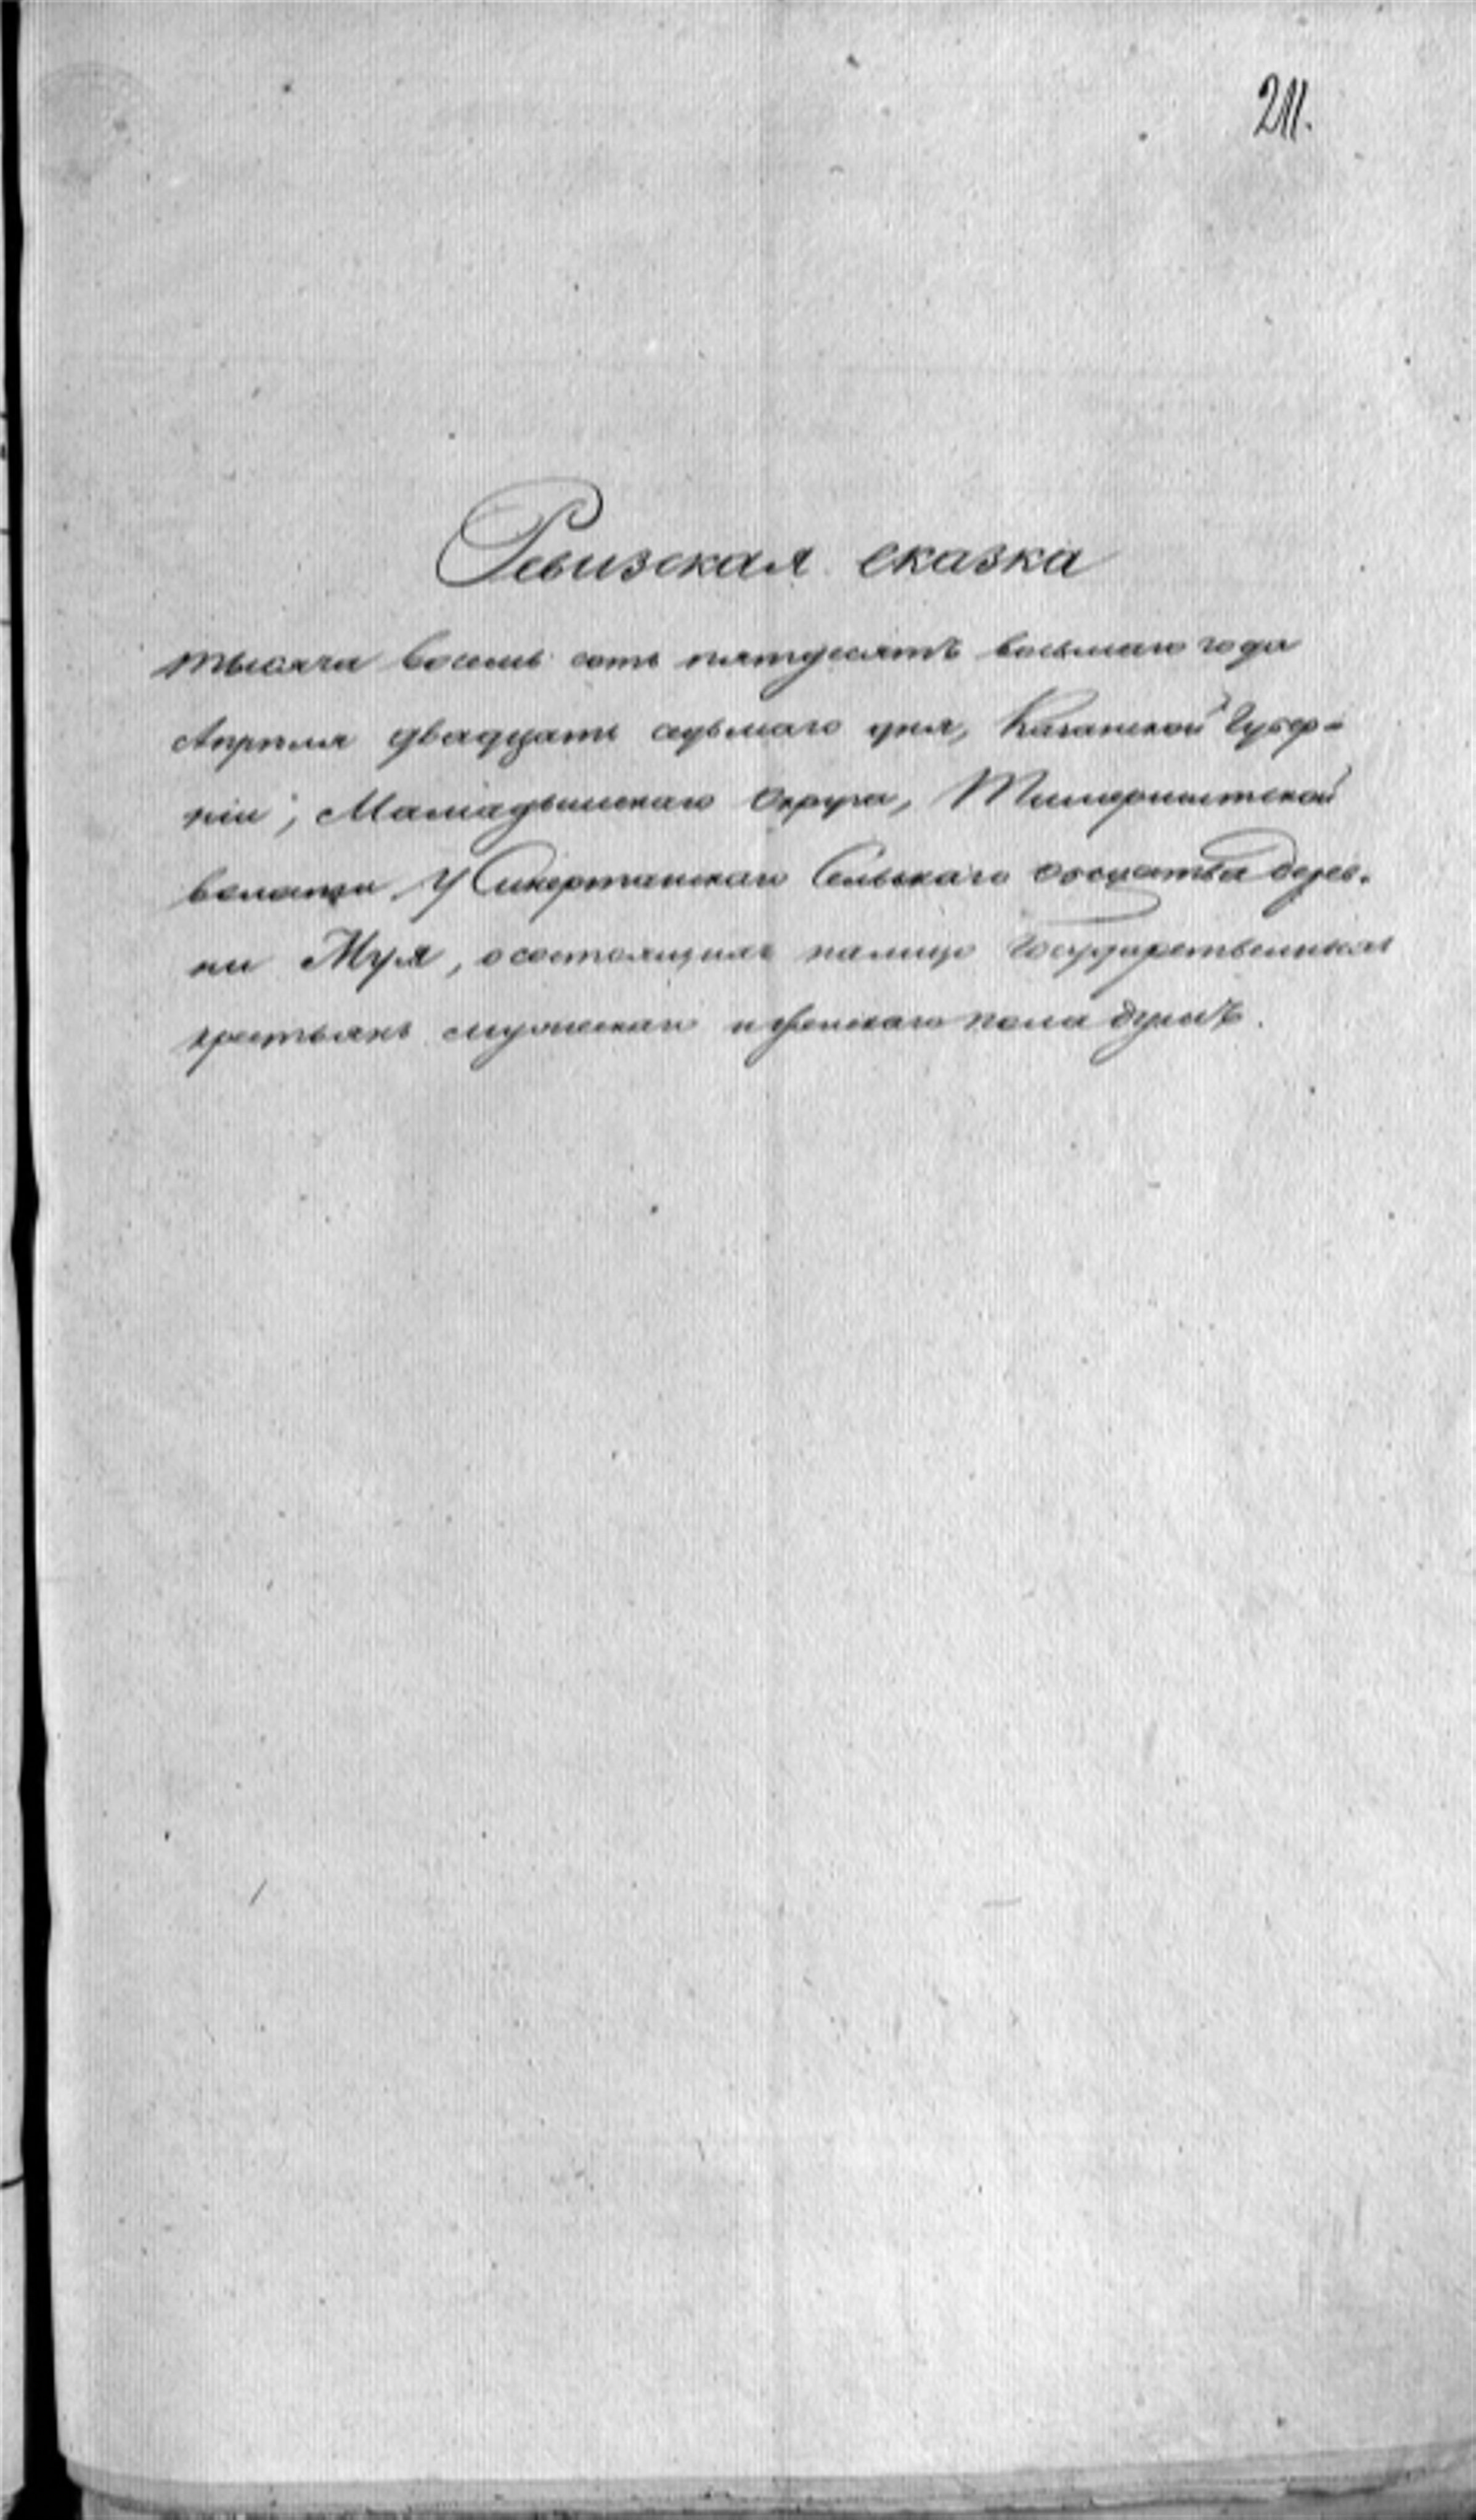 211.
Ревизская сказка
тысяча восемь сотъ пятдесятъ восьмаго года
Апрѣля двадцать седьмаго дня, Казанской Губер=
ніи, Мамадышскаго Округа,
волости Сельскаго общества дерев.
ни Муя, о состоящихъ налицо Государственныхъ
крестьянъ мужескаго и женскаго пола душъ.